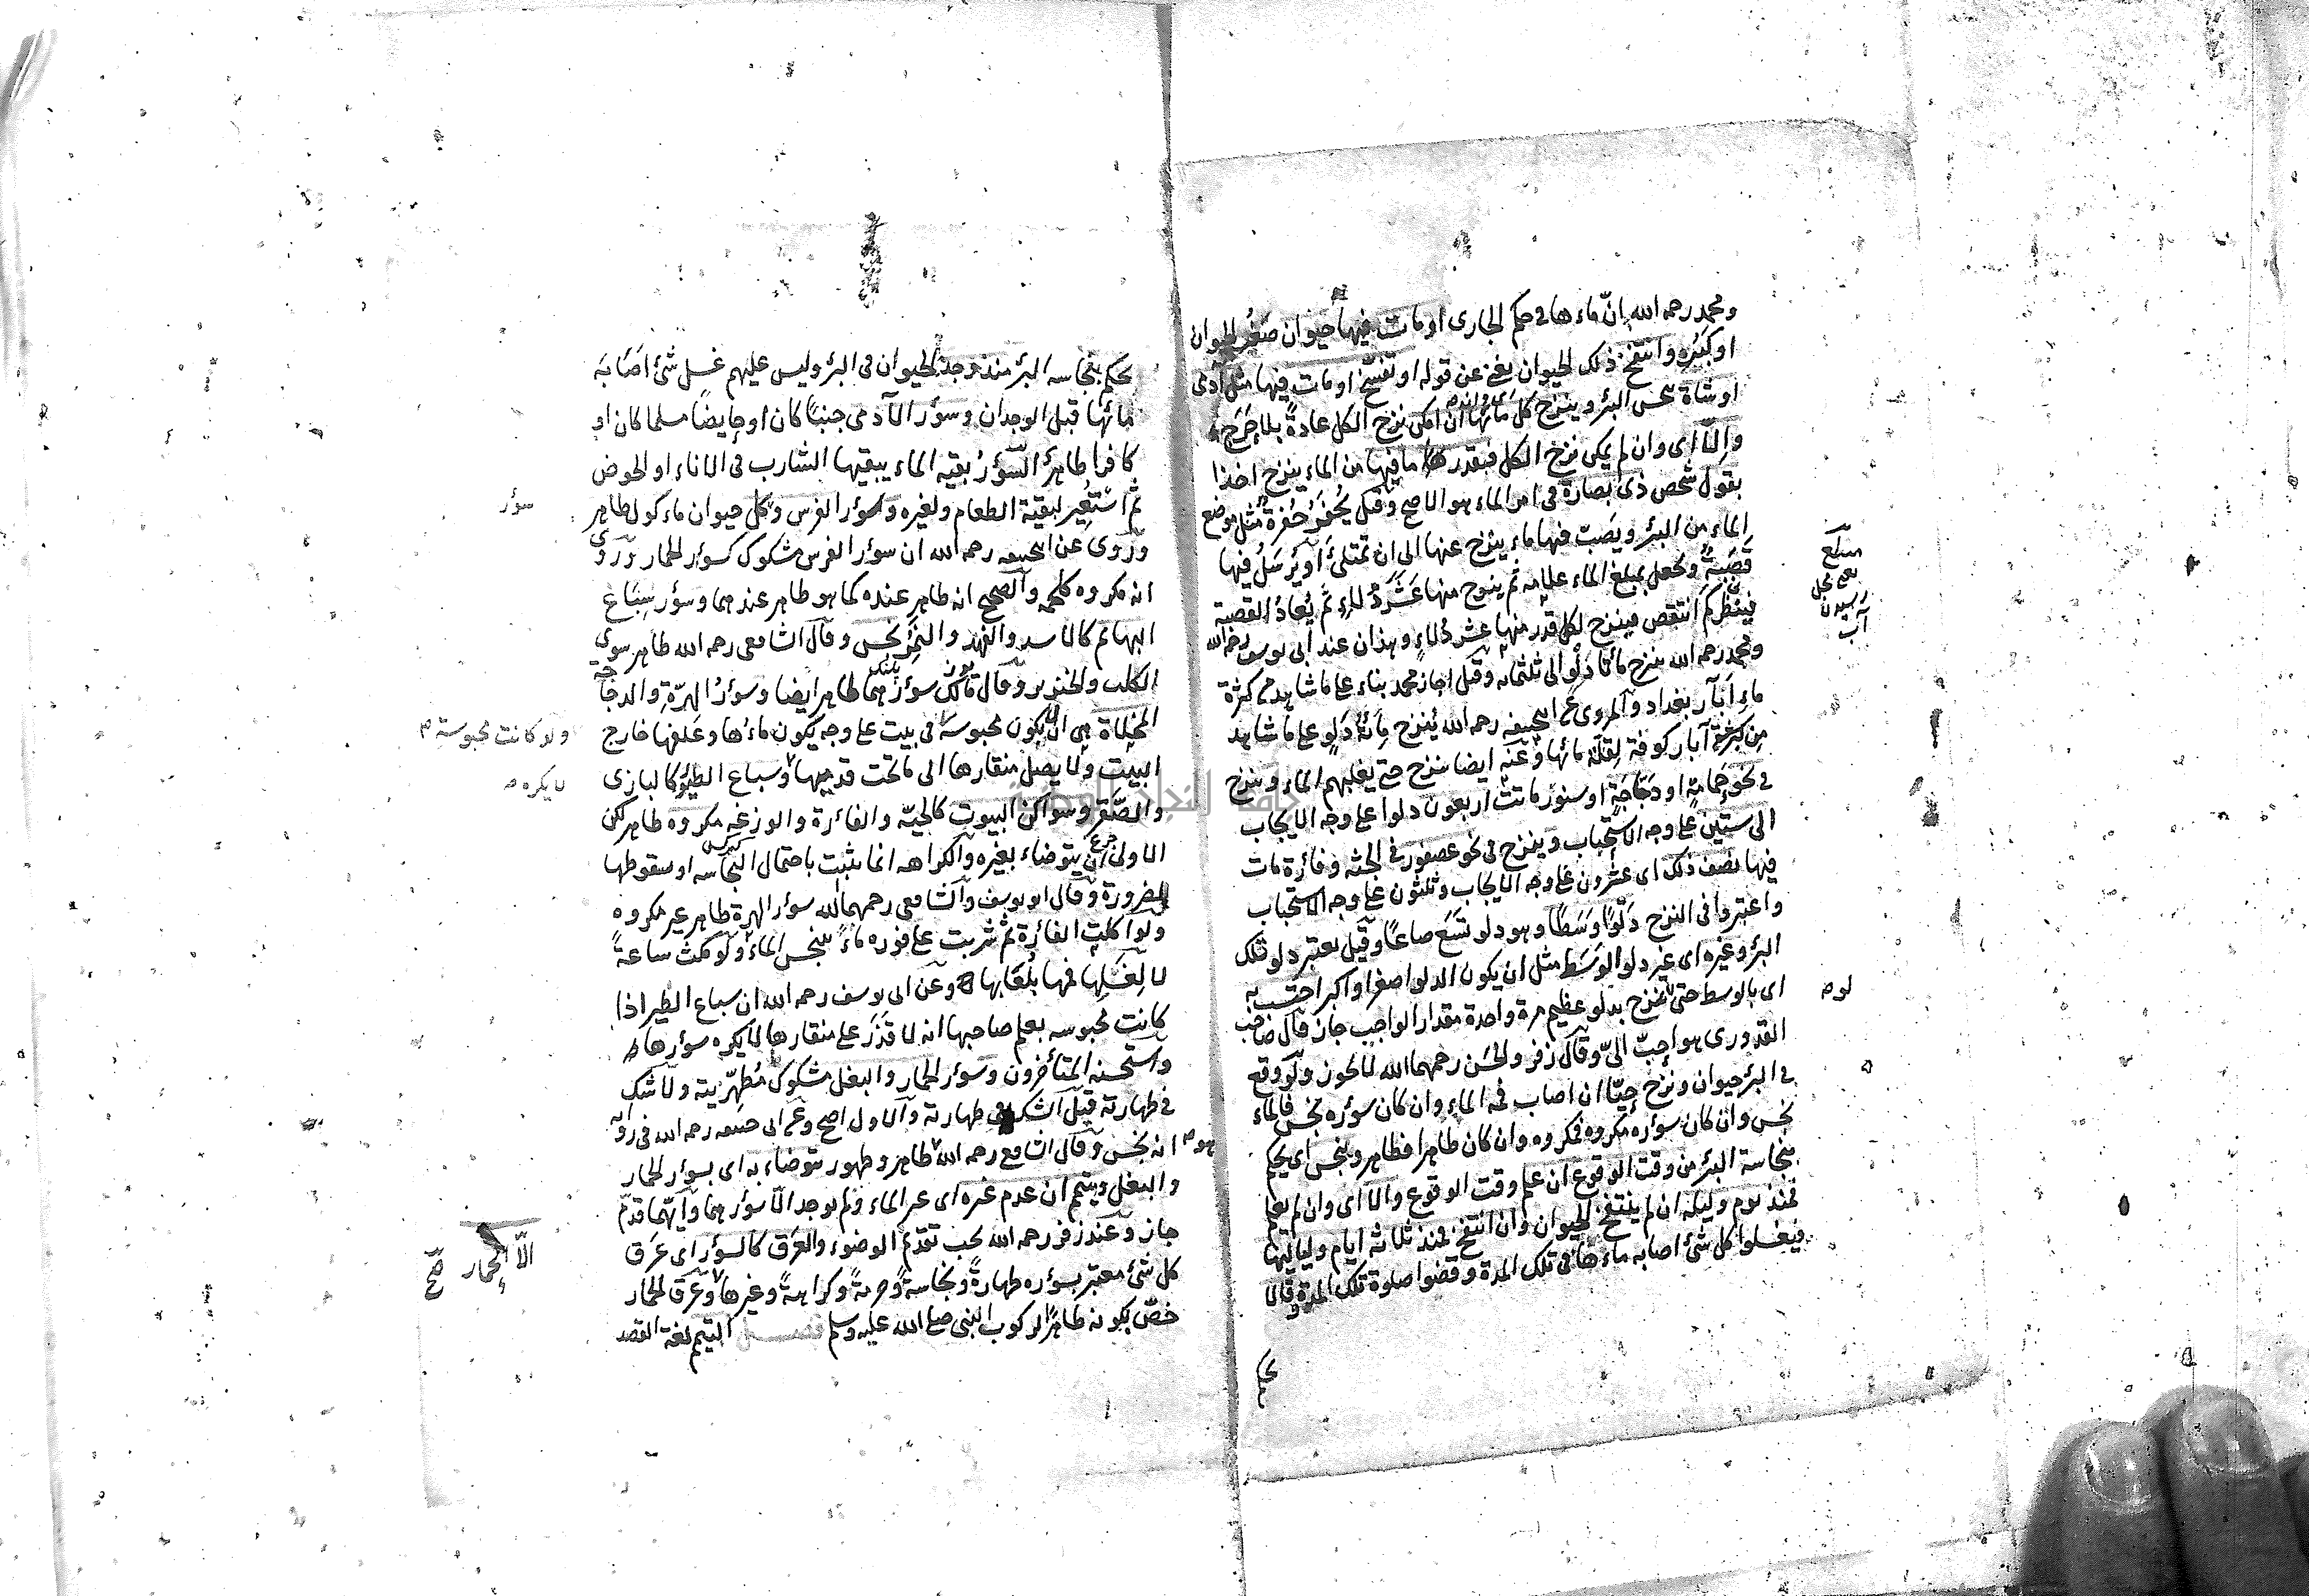 ومحمد رحمه الله انّ ماءها في حكم الجارى او مات فيها حيوان صغر الحيوان
او كبره وانتفخ ذلك الحيوان يغنى عن قوله او تفسخ او مات فيها مثل آدمى
او شاة نجس البئر وينزح كل مائها ان امكن نزح الكل عادةً بلا حرج
والّا اى وان لم يمكن نزح الكل فبقدر ما فيها من الماء ينزح اخذا
بقول شخص ذى بصارة في امر الماء هو الاصح وقيل يُحفر حُفرة مثل موضع
الماء من البئر ويصب فيها ماء ينزح عنها الى ان تمتلئ او يُرسَلُ فيها
قصبة ويجعل لمبلغ الماء علامه ثم ينزح منها عشر دلاء ثم يُعاد القصبة
فينظر كم انتقص فينزح لكل قدر منها عشر دلاء وهذان عند ابى يوسف رحمه الله
ومحمد رحمه الله ينزح مائتا دلو الى ثلثمائه وقيل اجاز محمد بناء على ما شاهد من كثرة
ماء آبار بغداد والمروى عن ابيحنيفه رحمه الله يُنزح مائة دلو على ما شاهد
من آبار كوفة لقلّة مائها وعنه ايضا ينزح حتى يغلبهم الماء وينزح
في نحو حمامة او دجاجة او سنور ماتت اربعون دلوا على وجه الايجاب
الى ستين على وجه الاستحباب وينزح في نحو عصفور في الجثه وفائرة مات
فيها نصف ذلك اى عشرون على وجه الايجاب وثلثون على وجه الاستحباب
واعتبروا في النزح دلوًا وسطًا وهو دلو تسع صاعًا وقيل يعتبر دلو تلك
البئر وغيره اى غير دلو الوسط مثل ان يكون الدلو اصغر او اكبر احتسب به
اى بالوسط حتى لو نزح بدلو عظيم مرة واحدة مقدار الواجب جاز قال صاحب
القدورى هو احبّ الىّ وقال زفر والحسن رحمهما الله لا يجوز ولو وقع
في البئر حيوان ونزح حيّا ان اصاب فمه الماء وان كان سؤره نجس فالماء
نجس وان كان سؤره مكروه فمكروه وان كان طاهرا فطاهر وينجس اى يحكم
بنجاسة البئر من وقت الوقوع ان علم وقت الوقوع والّا اى وان لم يعلم
فمنذ يوم وليلة ان لم ينتفخ الحيوان وان انتفخ فمنذ ثلاثه ايام ولياليها
فيغسلوا كل شئ اصابه ماءها في تلك المدة وقضوا صلوة تلك المدة وقالا
مبلغ
آب
يحكم بنجاسه البئر منذ وجد الحيوان في البئر وليس عليهم غسل شئ اصابه
مائها قبل الوجدان وسؤر الآدمى جنبًا كان او حايضًا مسلما كان او
كافرا طاهر السؤر بقيه الماء يبقيها الشارب في الاناء او الحوض
ثم استعير لبقية الطعام ولغيره وسؤر الفرس وكل حيوان ماءكول طاهر
ورُوى عن ابيحنيفه رحمه الله ان سؤر الفرس مشكوك كسؤر الحمار وروى
انه مكروه كلحمه والصحيح انه طاهر عنده كما هو طاهر عندهما وسؤر سباع
البهائم كالاسد والفهد والنمر نجس وقال الشافعى رحمه الله طاهر سوى
الكلب والخنزير وقال مالك سؤرهما طاهر ايضا وسؤر الهرّة والدجاجة
المخلاة هى ان لا يكون محبوسة في بيت على وجه يكون ماءها وعلفها خارج
البيت ولا يصل منقارها الى ما تحت قدميها وسباع الطير كالبازى
والصقر وسواكن البيوت كالحيّه والفائرة والوزغه مكروه طاهر لكن
الاولى ان يتوضاء بغيره والكراهه انما يثبت باحتمال النجاسه او سقوطها
للضرورة وقال ابو يوسف والشافعى رحمهما الله سؤر الهرة طاهر غير مكروه
ولو اكلت الفائرة ثم شربت على فوره ماءً ينجس الماء ولو مكث ساعةً
لا لغسلها فمها بلعابها وعن ابى يوسف رحمه الله ان سباع الطير اذا
كانت محبوسه يعلم صاحبها انه لا قذر على منقارها لا يكره سؤرها
واستحسنه المتأخرون وسؤر الحمار والبغل مشكوك مُطهّريته ولا شك
في طهارته قيل الشك في طهارته والاول اصح وعن ابى حنيفه رحمه الله في روايه
انه نجس وقال الشافعى رحمه الله طاهر وطهور يتوضاء به اى بسؤر الحمار
والبغل ويتيمم ان عدم غيره اى غير الماء ولم يوجد الّا سؤرهما وأيّهما قدّم
جاز وعند زفر رحمه الله يجب تقدّم الوضوء والعرق كالسؤر اى عرق
كل شئ معتبر بسؤره طهارةً ونجاسةً وحرمةً وكراهةً وغيرها وعرق الحمار
خصّ بكونه طاهرًا لركوب النبى صلى الله عليه وسلم فصل التيمم لغة القصد
سؤر
ولو كانت محبوسة
لا يكره
الّا الحمار صح